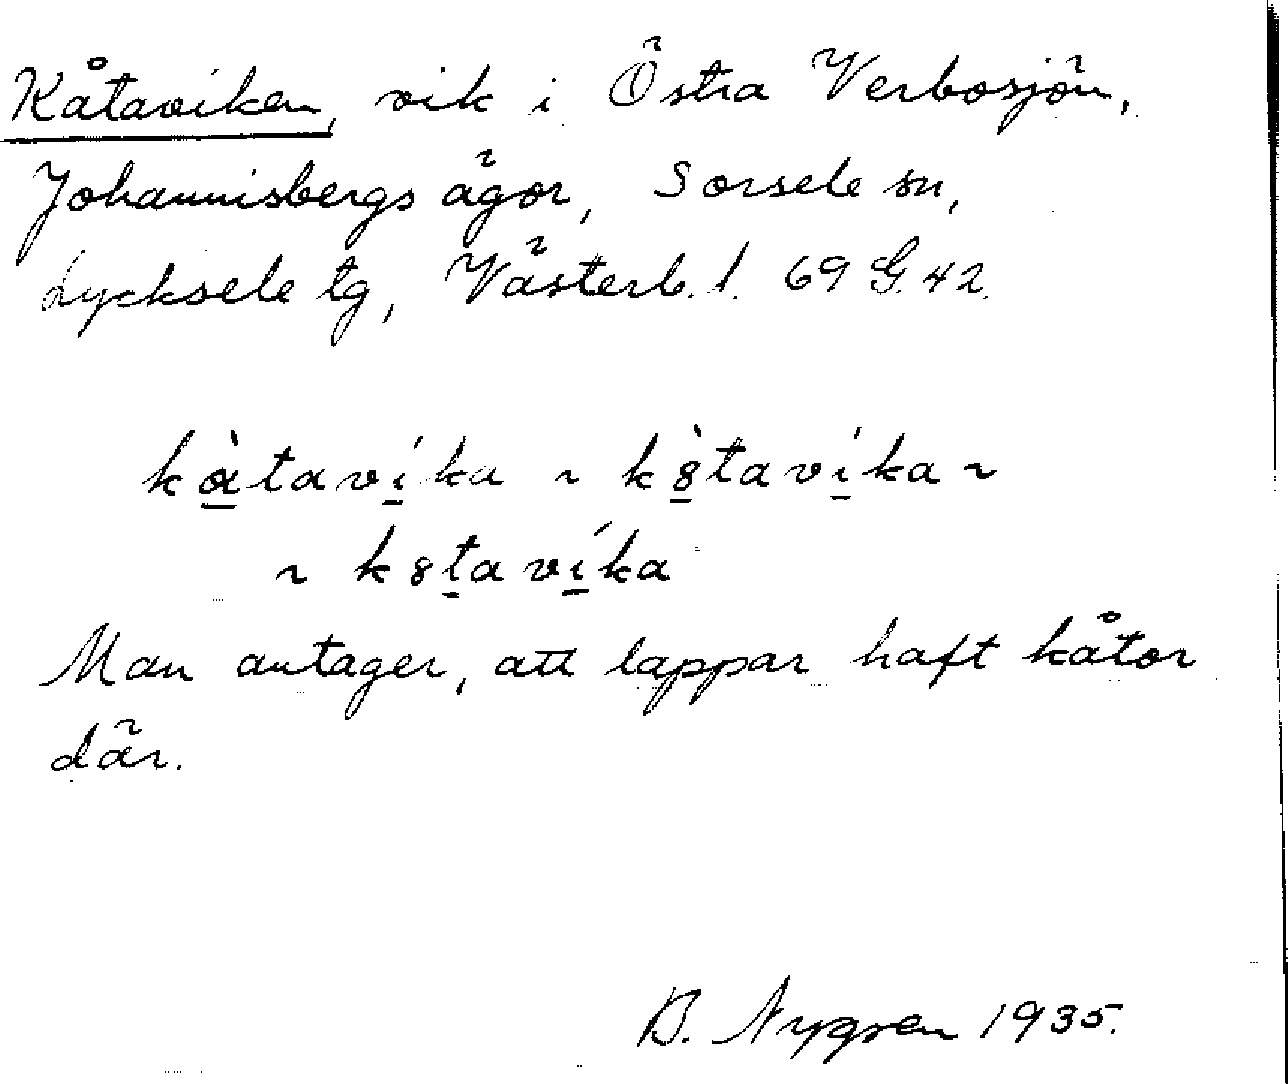 Kåtaviken, vik i Östra Verbosjön,
Johannisbergs ägor, Sorsele sn,
Lycksele tg, Västerb. l. 69 G 42.
kà̱taví̱ka ~ k8̱̀taví̱ka ~
~ k8ṯaví̱ka
Man antager, att lappar haft kåtor
där.
B. Nygren 1935.